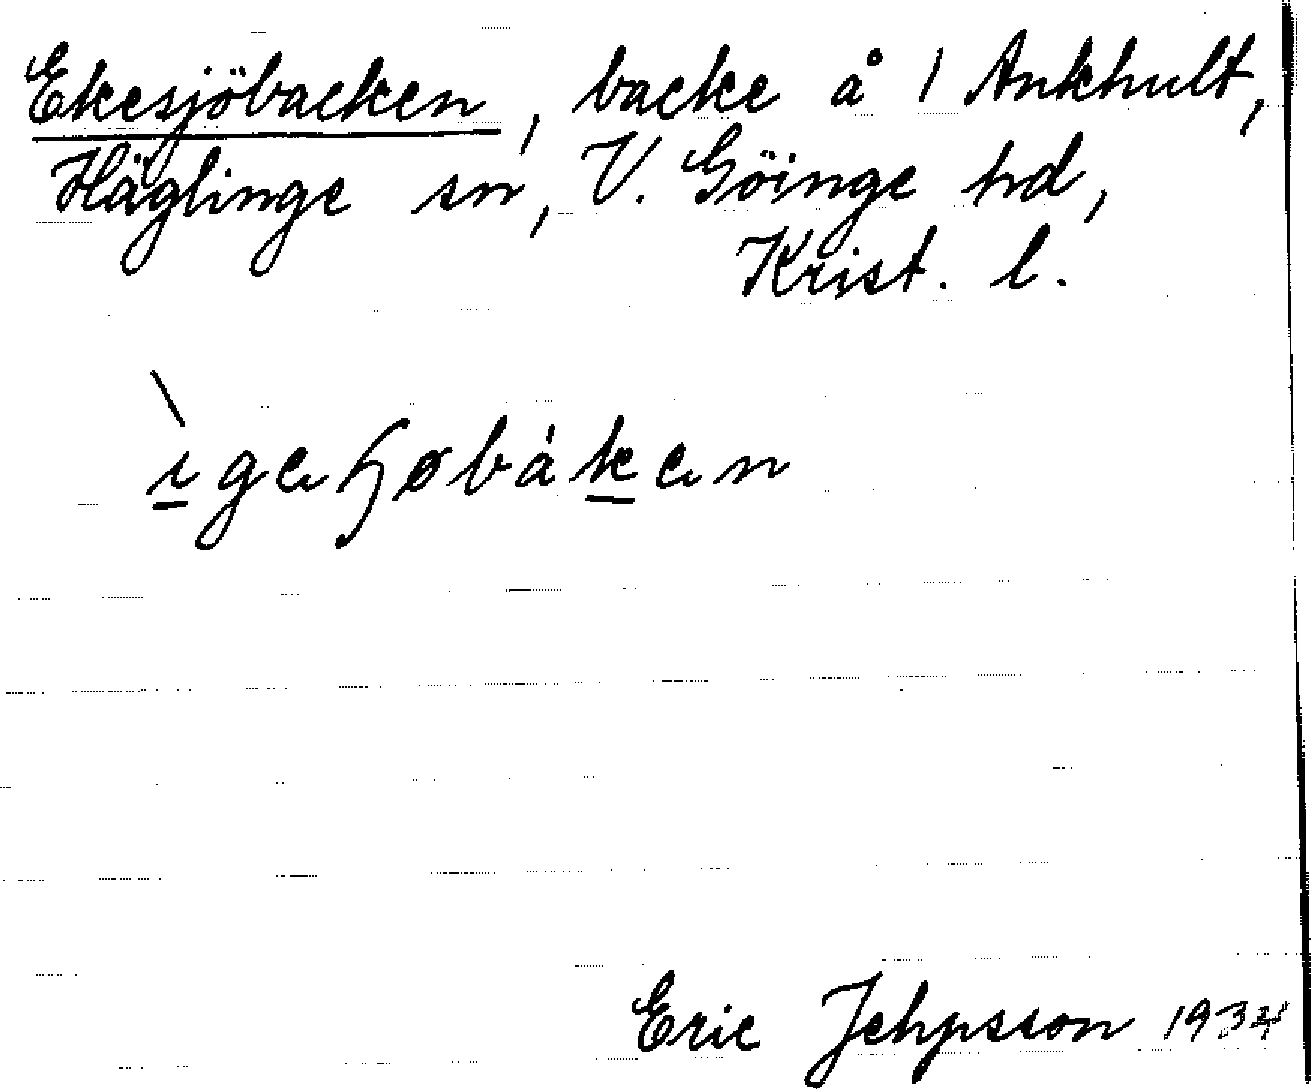 Ekesjöbacken, backe å 1 Ankhult,
Häglinge sn, V. Göinge hd,
Krist. l.
Eric Jepsson 1934